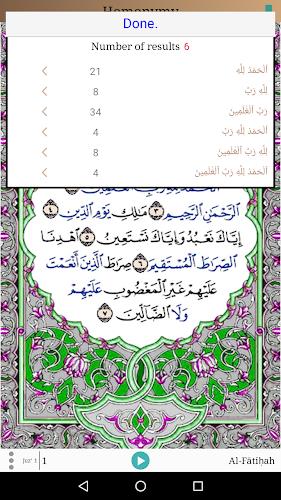 Homonymy
Done.
Number of results 6
21 الحَمدُ لِلَّهِ
8 لِلَّهِ رَبِّ
34 رَبِّ العَلَمِينَ
4 الحَمدُ لِلَّهِ رَبِّ
8 لِلَّهِ رَبِّ العَلَمِينَ
4 الحَمدُ لِلَّهِ رَبِّ العَلَمِينَ
ٱلرَّحْمَٰنِ ٱلرَّحِيمِ ٣ مَٰلِكِ يَوْمِ ٱلدِّينِ ٤
إِيَّاكَ نَعْبُدُ وَإِيَّاكَ نَسْتَعِينُ ٥ ٱهْدِنَا
ٱلصِّرَٰطَ ٱلْمُسْتَقِيمَ ٦ صِرَٰطَ ٱلَّذِينَ أَنْعَمْتَ
عَلَيْهِمْ غَيْرِ ٱلْمَغْضُوبِ عَلَيْهِمْ
وَلَا ٱلضَّآلِّينَ ٧
Juz' 1 1 Al-Fātiḥah